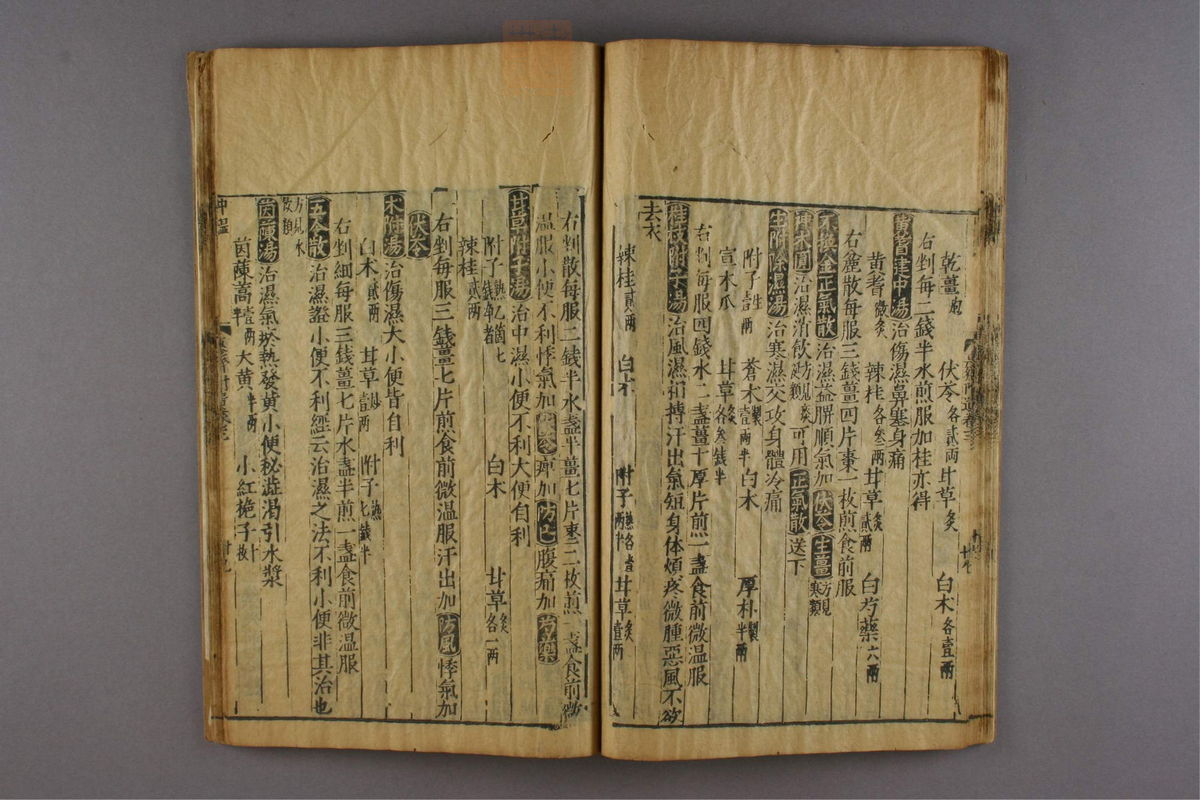 乾薑炮 伏苓各貳兩 甘草炙 白朮各壹兩
右剉每二錢半水煎服加桂亦得
黃耆建中湯治傷濕鼻塞身痛
黃耆微炙 辣桂各叁兩 甘草炙貳兩 白芍藥六兩
右麄散每服三錢薑四片棗一枚煎食前服
不換金正氣散治濕益脾順氣加伏苓生薑方見寒類
治濕消飲方見痰類可用正氣散送下
生附除濕湯治寒濕交攻身體冷痛
附子生壹兩 蒼朮製壹兩半 白朮 厚朴製半兩
宣木瓜 甘草炙各叁錢半
右剉每服四錢水二盞薑十厚片煎一盞食前微溫服
桂枝附子湯治風濕相搏汗出氣短身体煩疼微腫惡風不欲
去衣
辣桂貳兩 白朮 附子熟各壹兩半 甘草炙壹兩
右剉散每服二錢半水盞半薑七片棗二枚煎一盞食前微
溫服小便不利悸氣加伏苓痺加防己腹痛加芍藥
甘草附子湯治中濕小便不利大便自利
附子熟七錢 白朮 甘草炙各一兩
辣桂貳兩
右剉每服三錢薑七片煎食前微溫服汗出加防風悸氣加
伏苓
朮附湯治傷濕大小便皆自利
白朮貳兩 甘草炒壹兩 附子熟七錢半
右剉細每服三錢薑七片水盞半煎一盞食前微溫服
五苓散治濕證小便不利經云治濕之法不利小便非其治也
方見水飲類
茵蔯湯治濕氣瘀熱發黃小便秘澁渴引水漿
茵蔯蒿壹兩半 大黃半兩 小紅梔子十枚
中濕